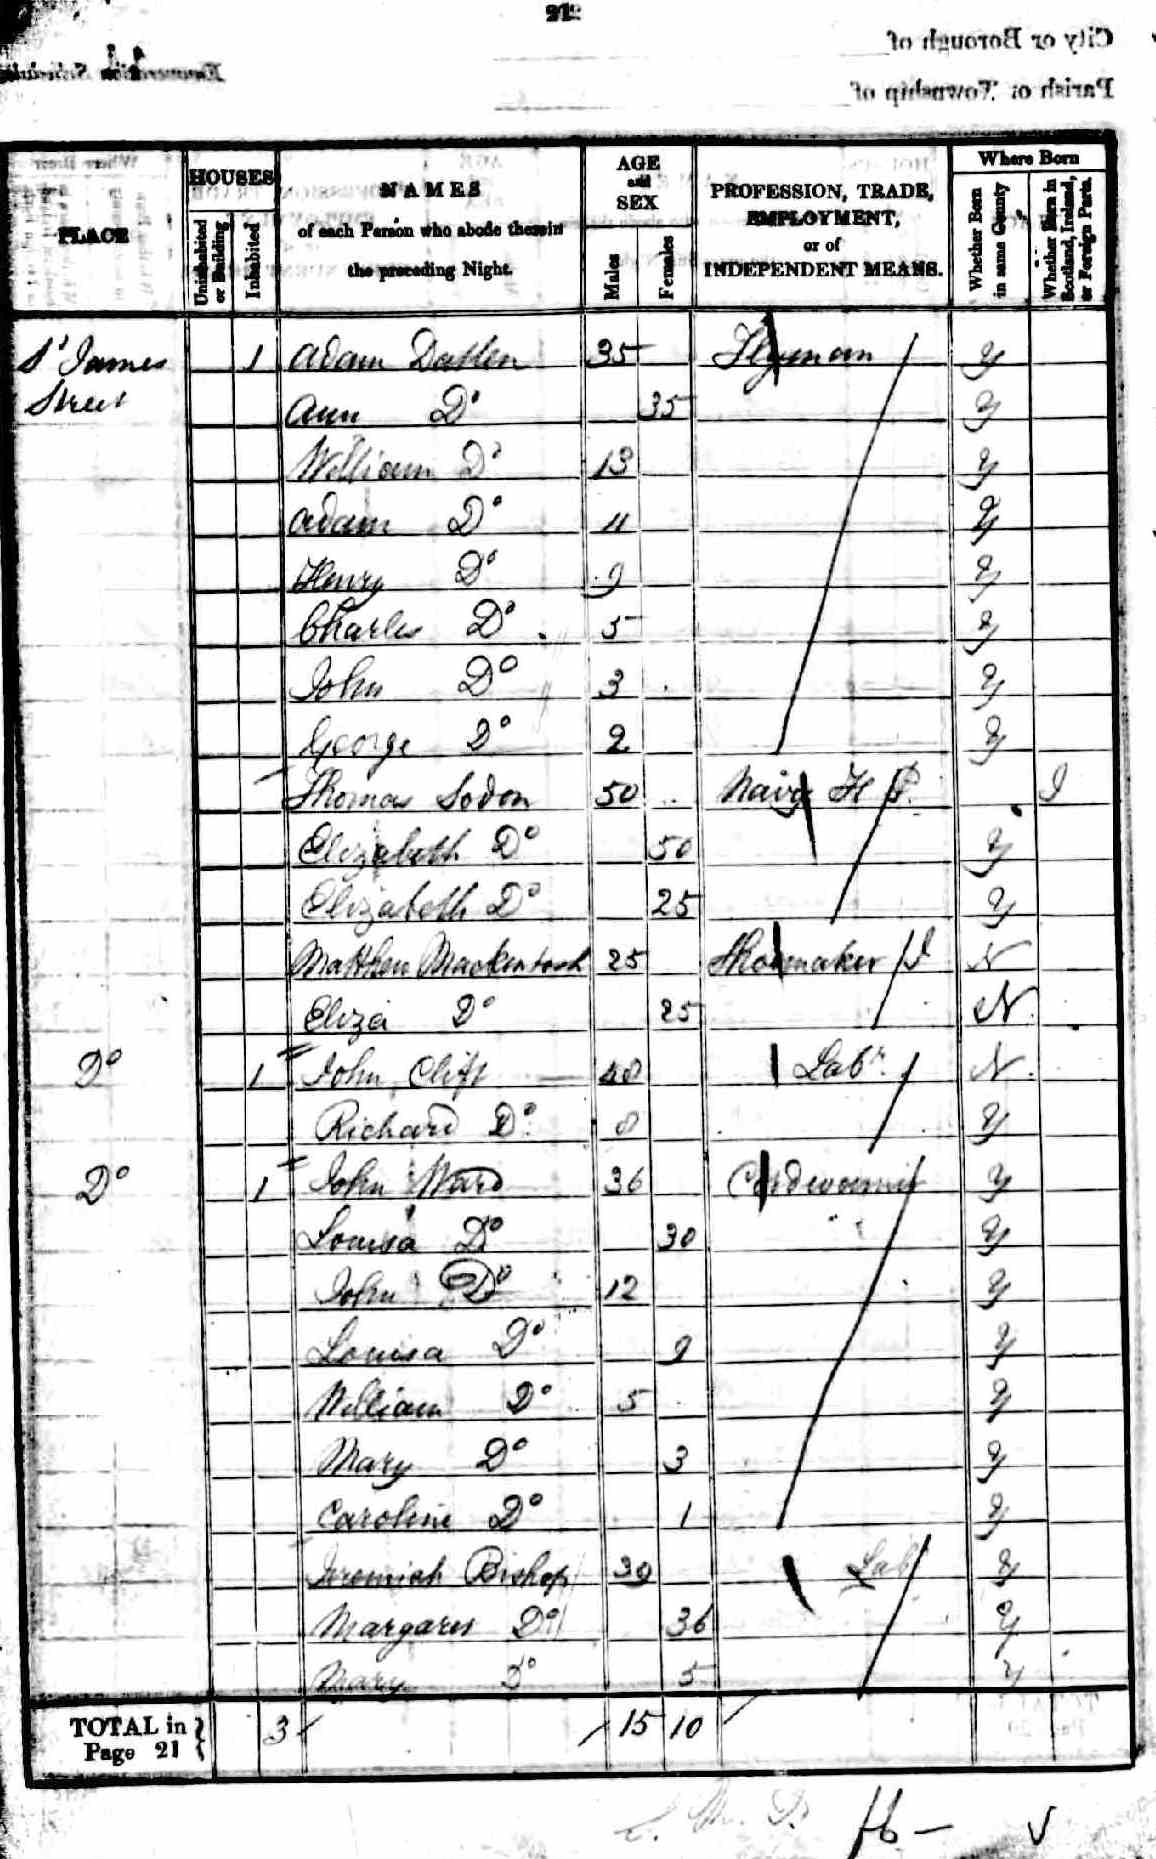 212
City or Borough of
Enumeration Schedule
Parish or Township of
PLACE
HOUSES
Uninhabited or Building
Inhabited
NAMES
of each Person who abode therein
the preceding Night.
AGE and SEX
Males
Females
PROFESSION, TRADE,
EMPLOYMENT,
or of
INDEPENDENT MEANS.
Where Born
Whether Born in same County
Whether Born in Scotland, Ireland, or Foreign Parts.
St James 1 Adam 35 Y
Street Ann Do 35 Y
William Do 13 Y
Adam Do 11 Y
Henry Do 9 Y
Charles Do 5 Y
John Do 3 Y
George Do 2 Y
Thomas Sodon 50 Navy H P. I
Elizabeth Do 50 Y
Elizabeth Do 25 Y
Matthew Mackintosh 25 Shoemaker J N
Eliza Do 25 N
Do 1 John Clift 40 Labr. N
Richard Do 8 Y
Do 1 John Ward 36 Cordwainer Y
Louisa Do 30 Y
John Do 12 Y
Louisa Do 9 Y
William Do 5 Y
Mary Do 3 Y
Caroline Do 1 Y
Jeremiah Bishop 39 Lab Y
Margaret Do 36 Y
Mary Do 5 Y
TOTAL in Page 21 } 3 15 10